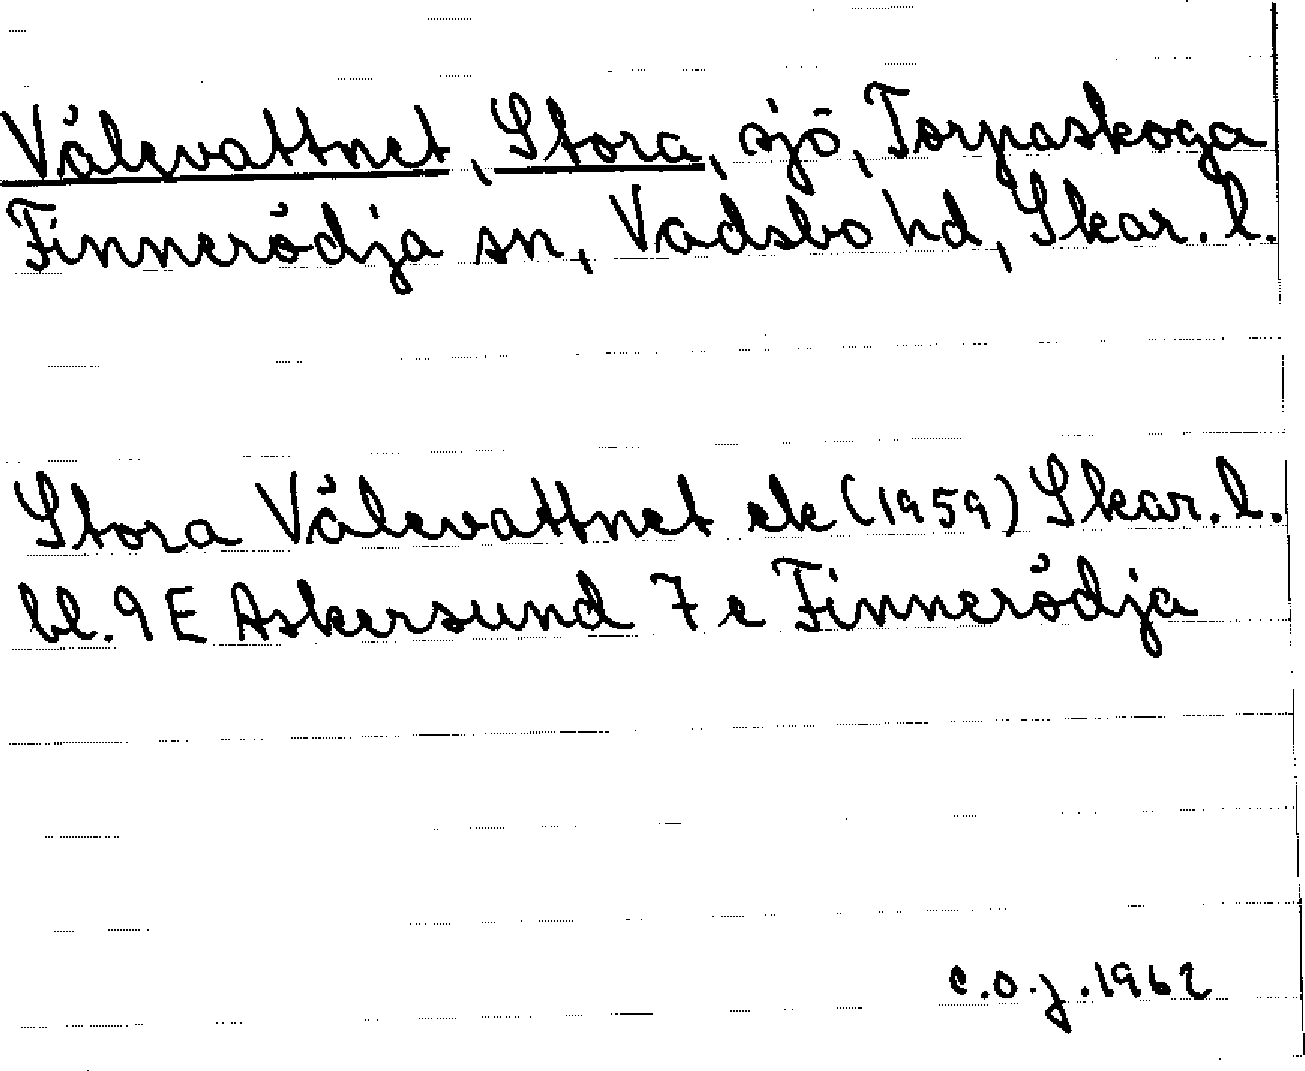 Välevattnet, Stora, sjö, Torpaskoga
Finnerödja sn, Vadsbo hd, Skar. l.
Stora Välevattnet ek (1959) Skar. l.
bl. 9 E Askersund 7 e Finnerödja
c.o.j. 1962